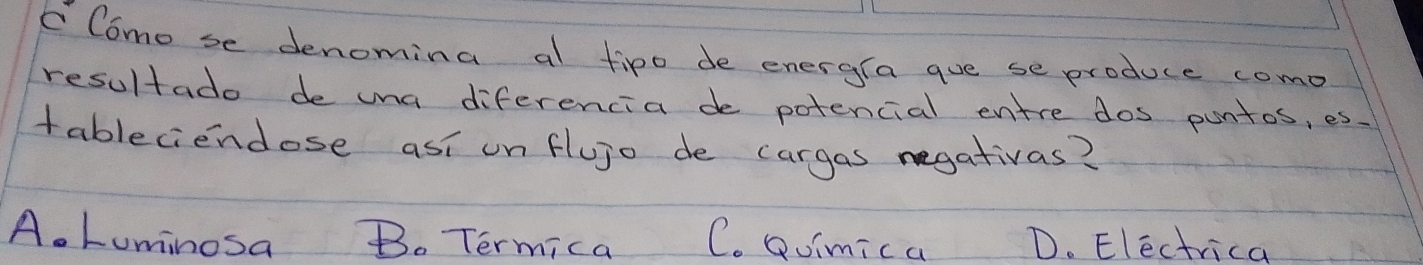 ¿Cómo se denomina al tipo de energía que se produce como
resultado de una diferencia de potencial entre dos puntos, es-
tableciéndose así un flujo de cargas negativas?
A. Luminosa B. Térmica C. Química D. Eléctrica